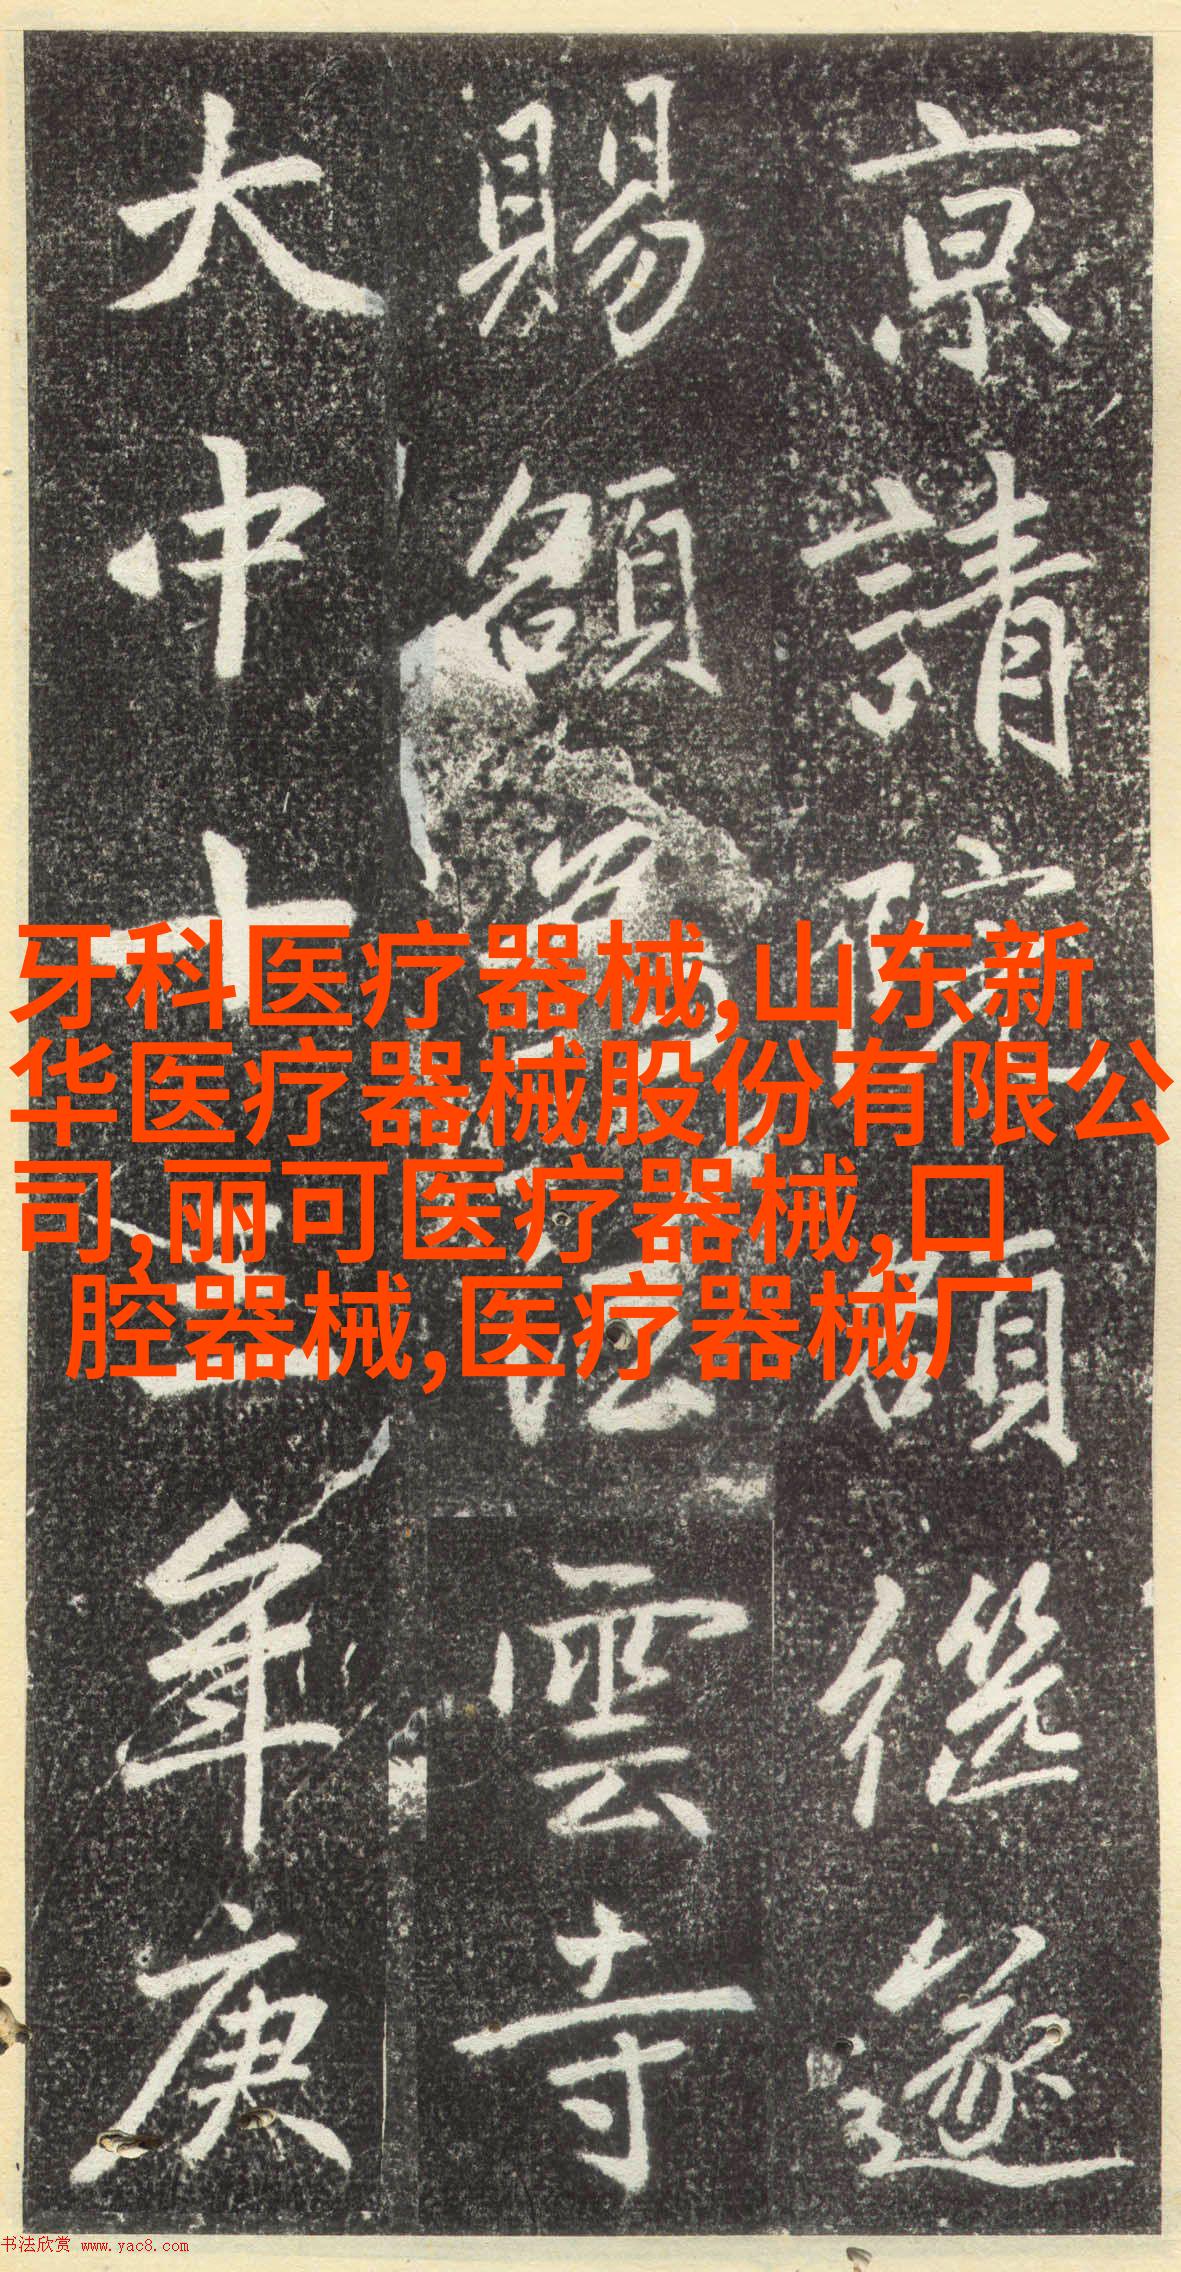 京請院額遂
賜額為法雲寺
大中十三年庚
牙科医疗器械,山东新
华医疗器械股份有限公
司,丽可医疗器械,口
腔器械,医疗器械厂
书法欣赏 www.yac8.com